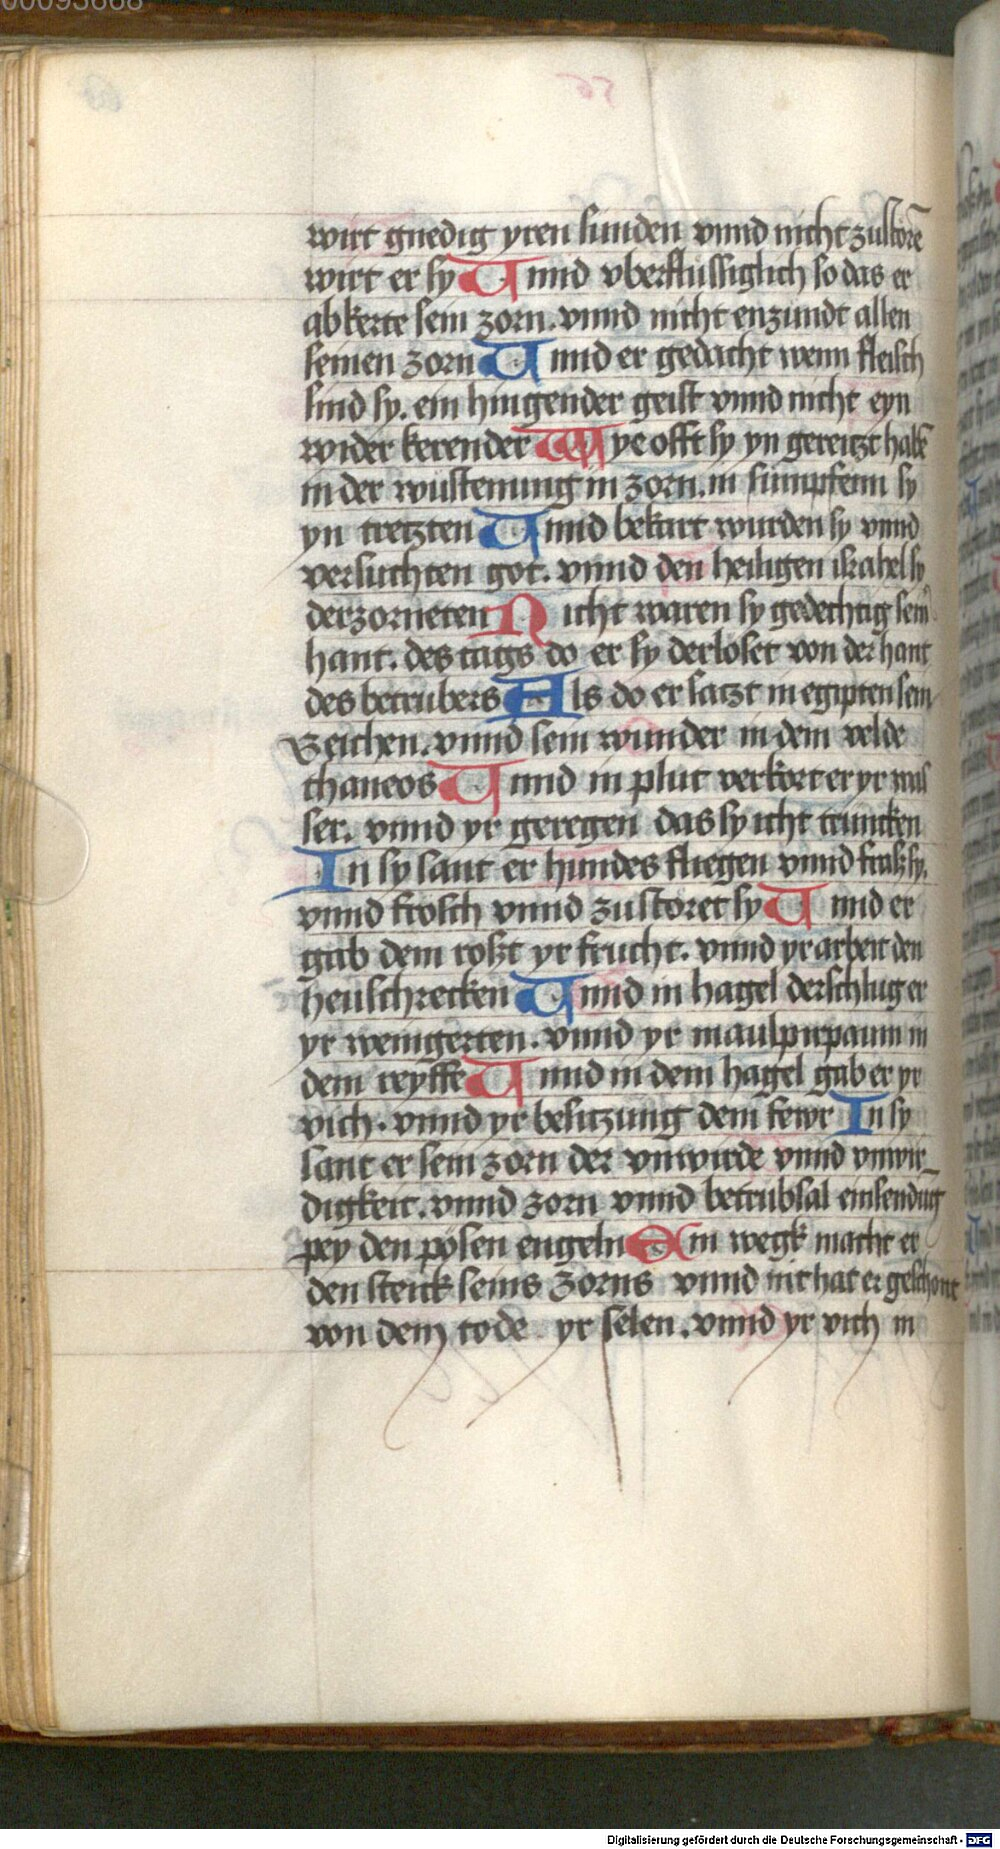 00093668
wirt gnedig yren sunden vnnd nicht zustorē
wirt er sy Unnd vberflussiglich so das er
abkerte sein zorn. vnnd nicht enzundt allen
seinen zorn Unnd er gedacht wenn fleisch
sind sy. ein hingender geist vnnd nicht eyn
wider kerender Wye offt sy yn gereitzt habē
in der wustenung in zorn. in sumpfenn sy
yn tretzten Unnd bekart wurden sy vnnd
versuchten got. vnnd den heiligen israhel sy
derzorneten Nicht waren sy gedechtig sein
hant. des tags do er sy derloset von der hant
des betrubers Als do er satzt in egipten sein
Zeichen. vnnd sein wunder in dem velde
thaneos Unnd in plut verkort er yr was
ser. vnnd yr geregen das sy icht truncken
In sy sant er hundes fliegen vnnd fraß sy.
vnnd frosch vnnd zustoret sy Unnd er
gab dem rost yr frucht. vnnd yr arbeit den
heuschrecken Unnd in hagel derschlug er
yr weingerten. vnnd yr maulpirpaum in
dem reyffe Unnd in dem hagel gab er yr
vich. vnnd yr besitzung dem fewr In sy
sant er sein zorn der vnwirde vnnd vnwir
digkeit. vnnd zorn vnnd betrubsal einsendūg
pey den pösen engeln Ein wegk macht er
den steick seins zorns vnnd nit hat er geschont
von dem tode yr selen. vnnd yr vich in
Digitalisierung gefördert durch die Deutsche Forschungsgemeinschaft - DFG